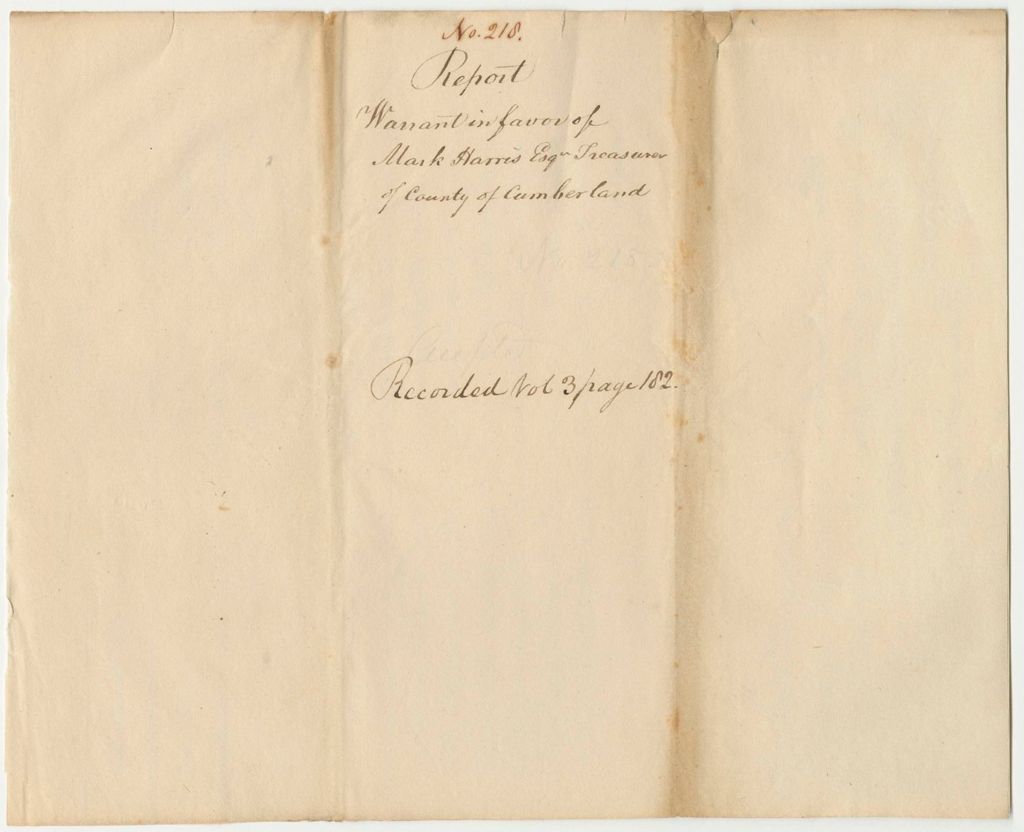 No. 218.
Report
Warrant in favor of
Mark Harris Esqr Treasurer
of County of Cumberland
No 218
Accepted
Recorded Vol 3 page 182.